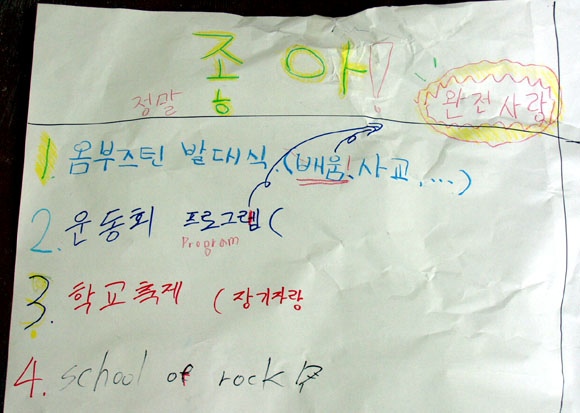 좋아!
정말
완전사랑
1. 옴부즈틴 발대식 (배움!, 사교, ...)
2. 운동회 프로그램 (
Program
3. 학교축제 (장기자랑
4. school of rock